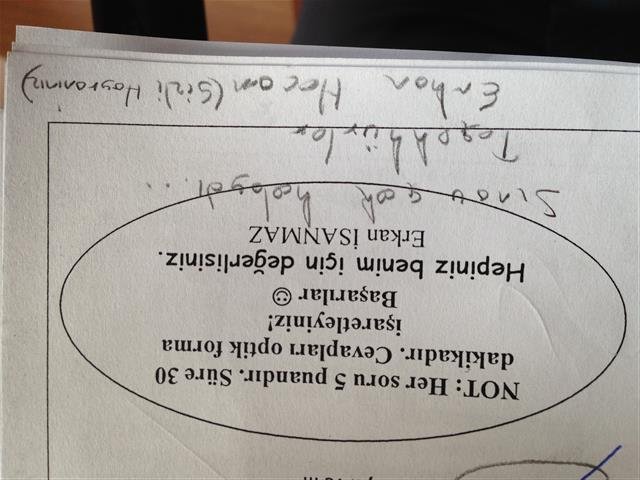 NOT: Her soru 5 puandır. Süre 30
dakikadır. Cevapları optik forma
işaretleyiniz!
Başarılar ☺
Hepiniz benim için değerlisiniz.
Erkan İSANMAZ
Sınav çok kolaydı...
Teşekkürler
Erkan Hocam (Gizli Hayranınız)